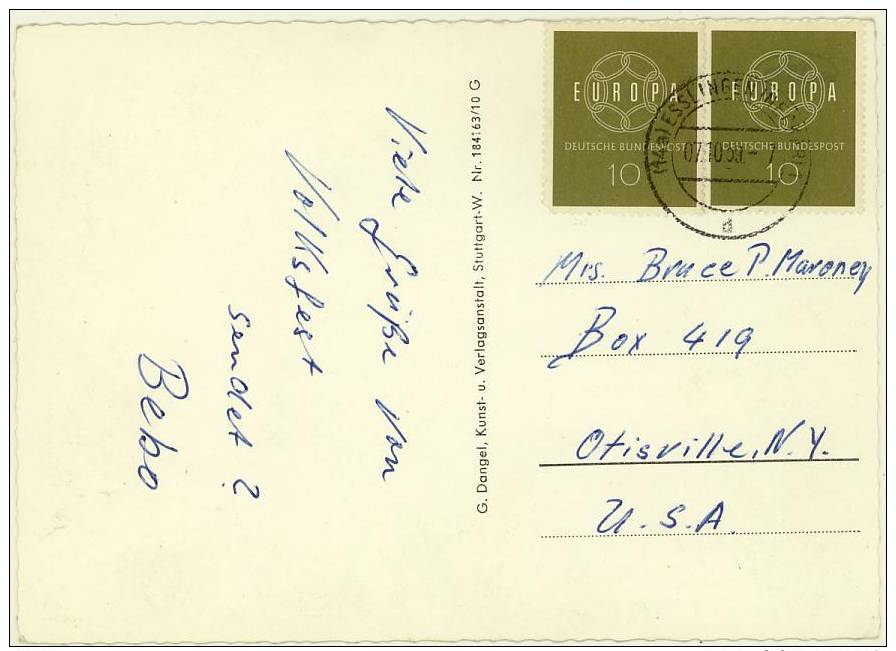 Viele Grüße von
Volksfest
sendet ?
Bebo
G. Dangel, Kunst- u. Verlagsanstalt, Stuttgart-W. Nr. 184/63/10 G
EUROPA
DEUTSCHE BUNDESPOST
10
EUROPA
DEUTSCHE BUNDESPOST
10
ESSLINGEN
07.10.59.-7
a
Mrs. Bruce P. Maroney
Box 419
Otisville, N.Y.
U.S.A.